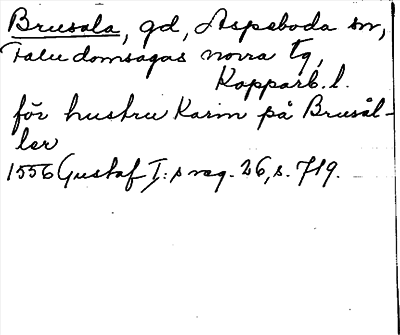 Brusala, gd, Aspeboda sn,
Falu domsagas norra tg,
Kopparb. l.
för hustru Karin på Brusål-
ler
1556 Gustaf I:s reg. 26, s. 719.